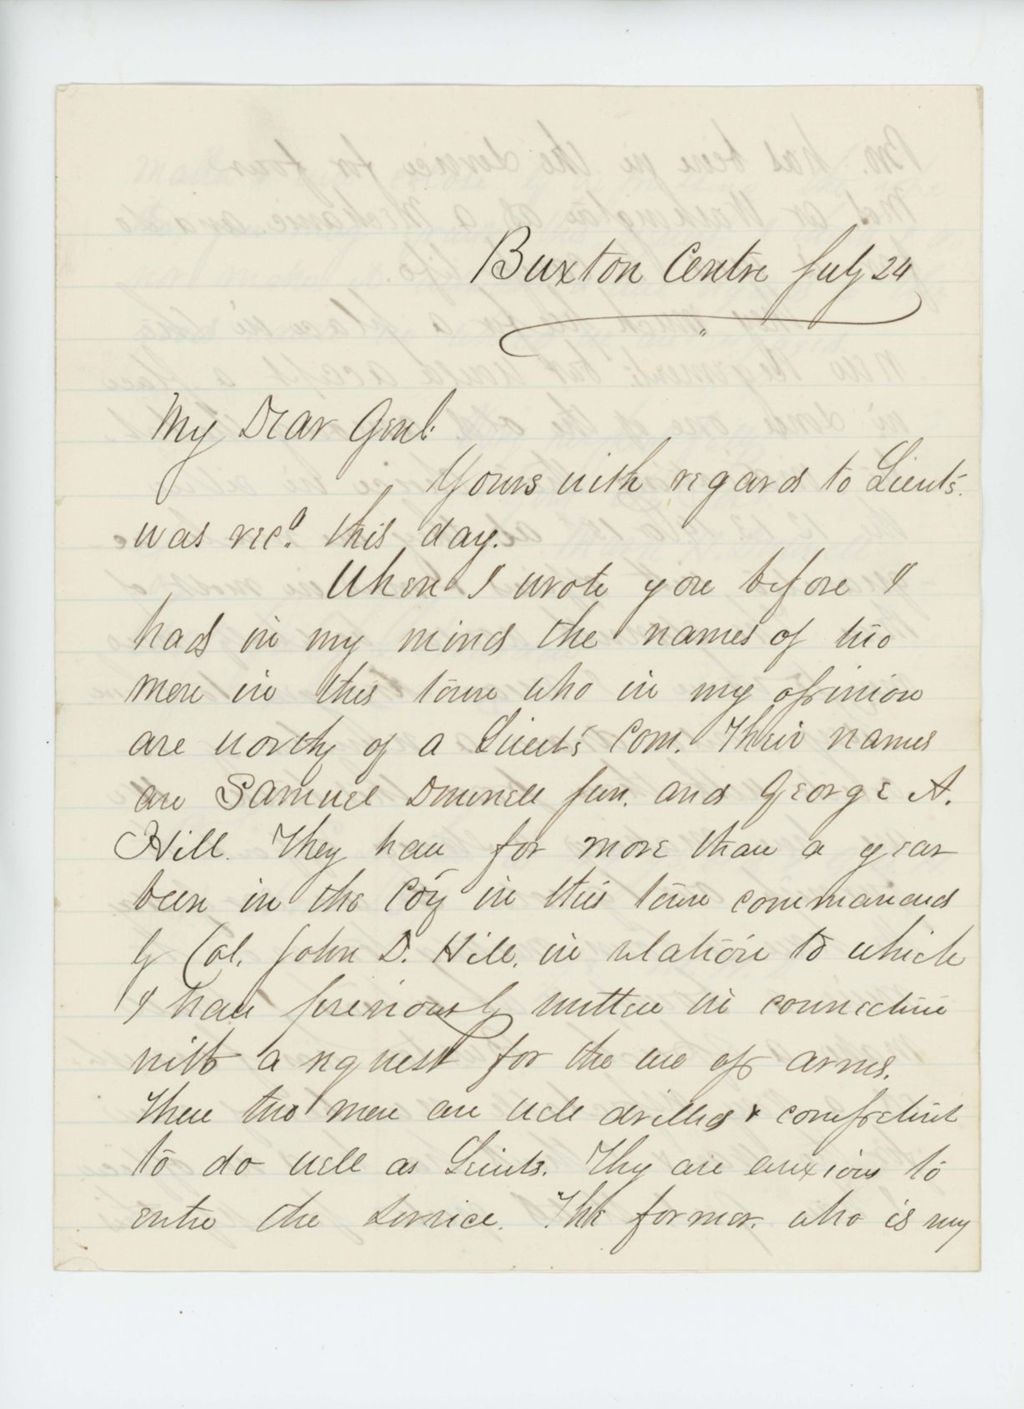 Buxton Centre July 24
My Dear Genl.
Yours with regard to Lieuts.
was recd. this day.
When I wrote you before I
had in my mind the names of two
men in this town who in my opinion
are worthy of a Lieut's Com. Their names
are Samuel Dunnell Jun. and George A.
Hill. They have for more than a year
been in the Coy in this town commanded
by Col. John D. Hill, in relation to which
I have previously written in connection
with a request for the use of arms.
These two men are well drilled & competent
to do well as Lieuts. They are anxious to
enter the service. The former who is my